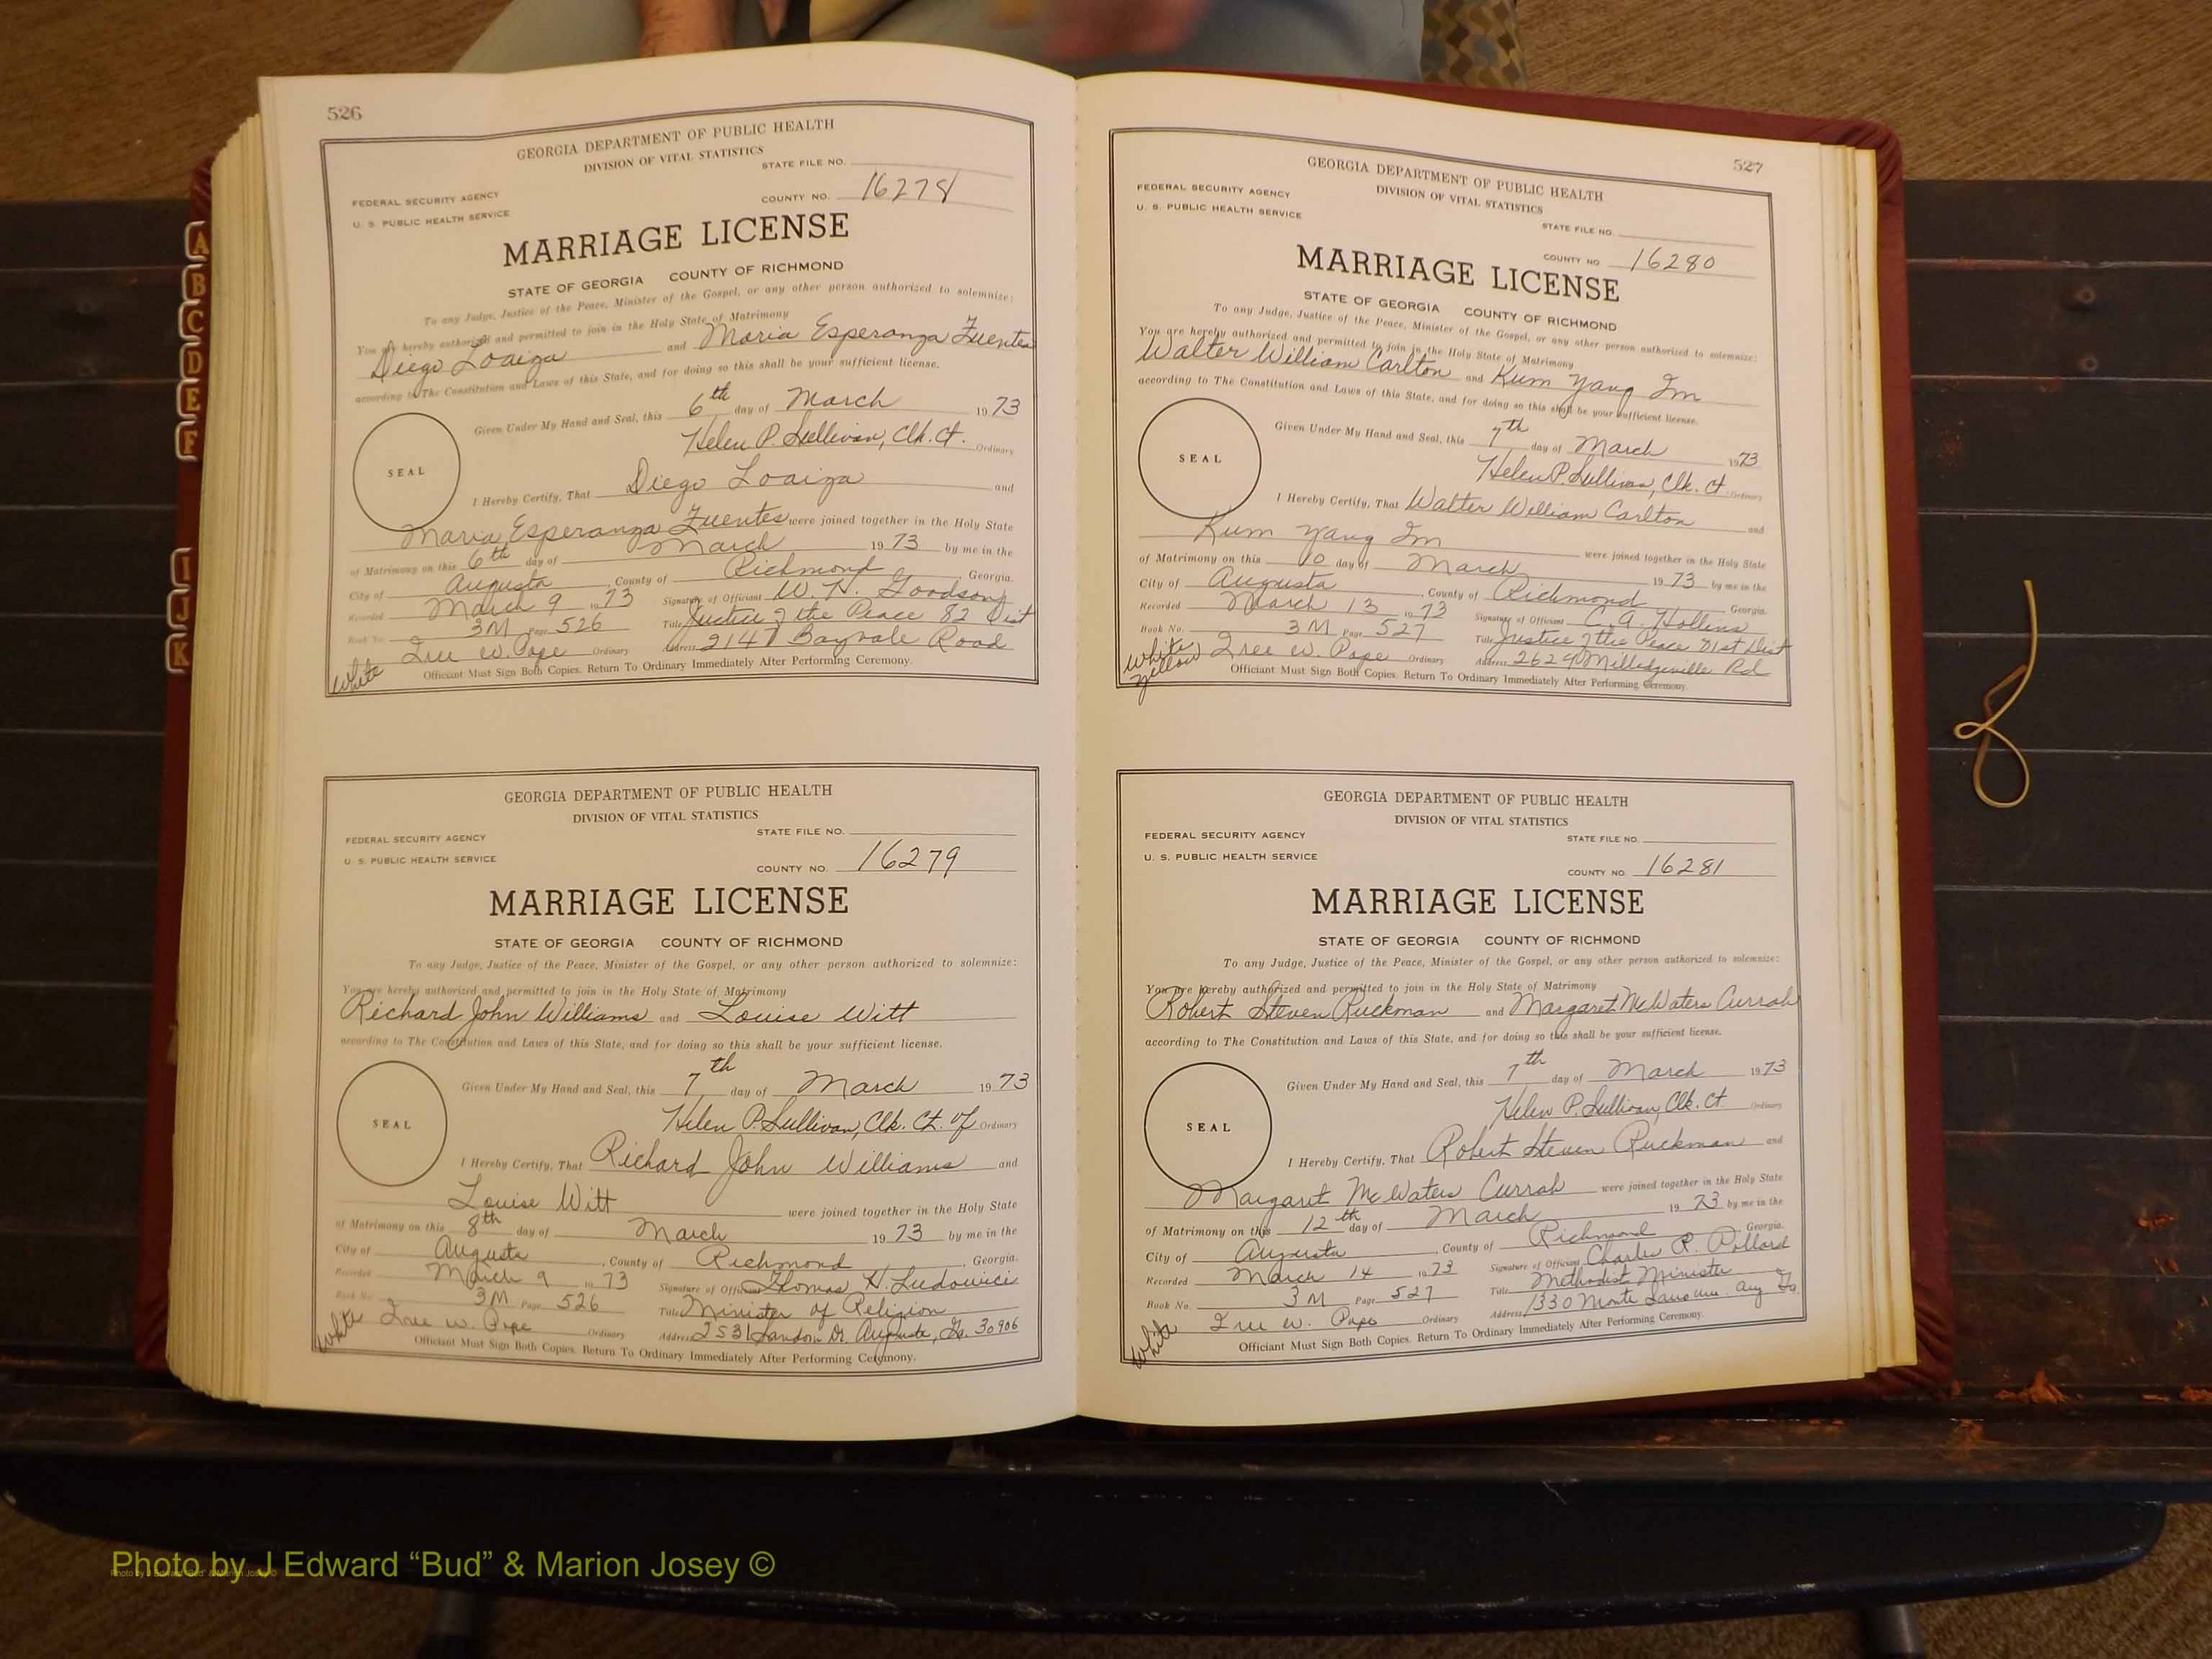 A
B
C
D
E
F
I
J
K
526
GEORGIA DEPARTMENT OF PUBLIC HEALTH
DIVISION OF VITAL STATISTICS
STATE FILE NO.
FEDERAL SECURITY AGENCY
COUNTY NO. 16278
U. S. PUBLIC HEALTH SERVICE
MARRIAGE LICENSE
STATE OF GEORGIA COUNTY OF RICHMOND
To any Judge, Justice of the Peace, Minister of the Gospel, or any other person authorized to solemnize:
You are hereby authorized and permitted to join in the Holy State of Matrimony
Diego Loaiza and Maria Esperanza Fuentes
according to The Constitution and Laws of this State, and for doing so this shall be your sufficient license.
Given Under My Hand and Seal, this 6th day of March 1973
Helen P. Sullivan, Clk. Ct. Ordinary
SEAL
I Hereby Certify, That Diego Loaiza and
Maria Esperanza Fuentes were joined together in the Holy State
of Matrimony on this 6th day of March 1973 by me in the
City of Augusta, County of Richmond, Georgia.
Recorded March 9 1973 Signature of Officiant W. H. Goodson
Book No. 3M Page 526 Title Justice of the Peace 82 Dist
Ordinary Address 2147 Bayvale Road
White
Officiant Must Sign Both Copies. Return To Ordinary Immediately After Performing Ceremony.
GEORGIA DEPARTMENT OF PUBLIC HEALTH
DIVISION OF VITAL STATISTICS
STATE FILE NO.
FEDERAL SECURITY AGENCY
U. S. PUBLIC HEALTH SERVICE
COUNTY NO. 16279
MARRIAGE LICENSE
STATE OF GEORGIA COUNTY OF RICHMOND
To any Judge, Justice of the Peace, Minister of the Gospel, or any other person authorized to solemnize:
You are hereby authorized and permitted to join in the Holy State of Matrimony
Richard John Williams and Louise Witt
according to The Constitution and Laws of this State, and for doing so this shall be your sufficient license.
Given Under My Hand and Seal, this 7th day of March 1973
Helen P. Sullivan, Clk. Ct. of Ordinary
SEAL
I Hereby Certify, That Richard John Williams and
Louise Witt were joined together in the Holy State
of Matrimony on this 8th day of March 1973 by me in the
City of Augusta, County of Richmond, Georgia.
Recorded March 9 1973 Signature of Officiant Thomas H. Ludowici
Book No. 3M Page 526 Title Minister of Religion
Ordinary Address 2531 Landon Dr. Augusta, Ga. 30906
White
Officiant Must Sign Both Copies. Return To Ordinary Immediately After Performing Ceremony.
527
GEORGIA DEPARTMENT OF PUBLIC HEALTH
DIVISION OF VITAL STATISTICS
FEDERAL SECURITY AGENCY
U. S. PUBLIC HEALTH SERVICE
STATE FILE NO.
COUNTY NO 16280
MARRIAGE LICENSE
STATE OF GEORGIA COUNTY OF RICHMOND
To any Judge, Justice of the Peace, Minister of the Gospel, or any other person authorized to solemnize:
You are hereby authorized and permitted to join in the Holy State of Matrimony
Walter William Carlton and Kum Yang Im
according to The Constitution and Laws of this State, and for doing so this shall be your sufficient license.
Given Under My Hand and Seal, this 7th day of March 1973
Helen P. Sullivan, Clk. Ct. Ordinary
SEAL
I Hereby Certify, That Walter William Carlton and
Kum Yang Im were joined together in the Holy State
of Matrimony on this 10 day of March 1973 by me in the
City of Augusta, County of Richmond, Georgia.
Recorded March 13 1973 Signature of Officiant C. A. Hollins
Book No. 3M Page 527 Title Justice of the Peace 81st Dist
Ordinary Address Milledgeville Rd
White
Yellow
Officiant Must Sign Both Copies. Return To Ordinary Immediately After Performing Ceremony.
GEORGIA DEPARTMENT OF PUBLIC HEALTH
DIVISION OF VITAL STATISTICS
FEDERAL SECURITY AGENCY
STATE FILE NO.
U. S. PUBLIC HEALTH SERVICE
COUNTY NO. 16281
MARRIAGE LICENSE
STATE OF GEORGIA COUNTY OF RICHMOND
To any Judge, Justice of the Peace, Minister of the Gospel, or any other person authorized to solemnize:
You are hereby authorized and permitted to join in the Holy State of Matrimony
Robert Steven Ruckman and Margaret McWaters Currah
according to The Constitution and Laws of this State, and for doing so this shall be your sufficient license.
Given Under My Hand and Seal, this 7th day of March 1973
Helen P. Sullivan, Clk. Ct. Ordinary
SEAL
I Hereby Certify, That Robert Steven Ruckman and
Margaret McWaters Currah were joined together in the Holy State
of Matrimony on this 12th day of March 1973 by me in the
City of Augusta, County of Richmond, Georgia.
Recorded March 14 1973 Signature of Officiant Charles R. Pollard
Book No. 3M Page 527 Title Methodist Minister
Ordinary Address 1330 Monte Sano Ave. Aug Ga.
White
Officiant Must Sign Both Copies. Return To Ordinary Immediately After Performing Ceremony.
Photo by J Edward “Bud” & Marion Josey ©
Photo by J Edward "Bud" & Marion Josey ©